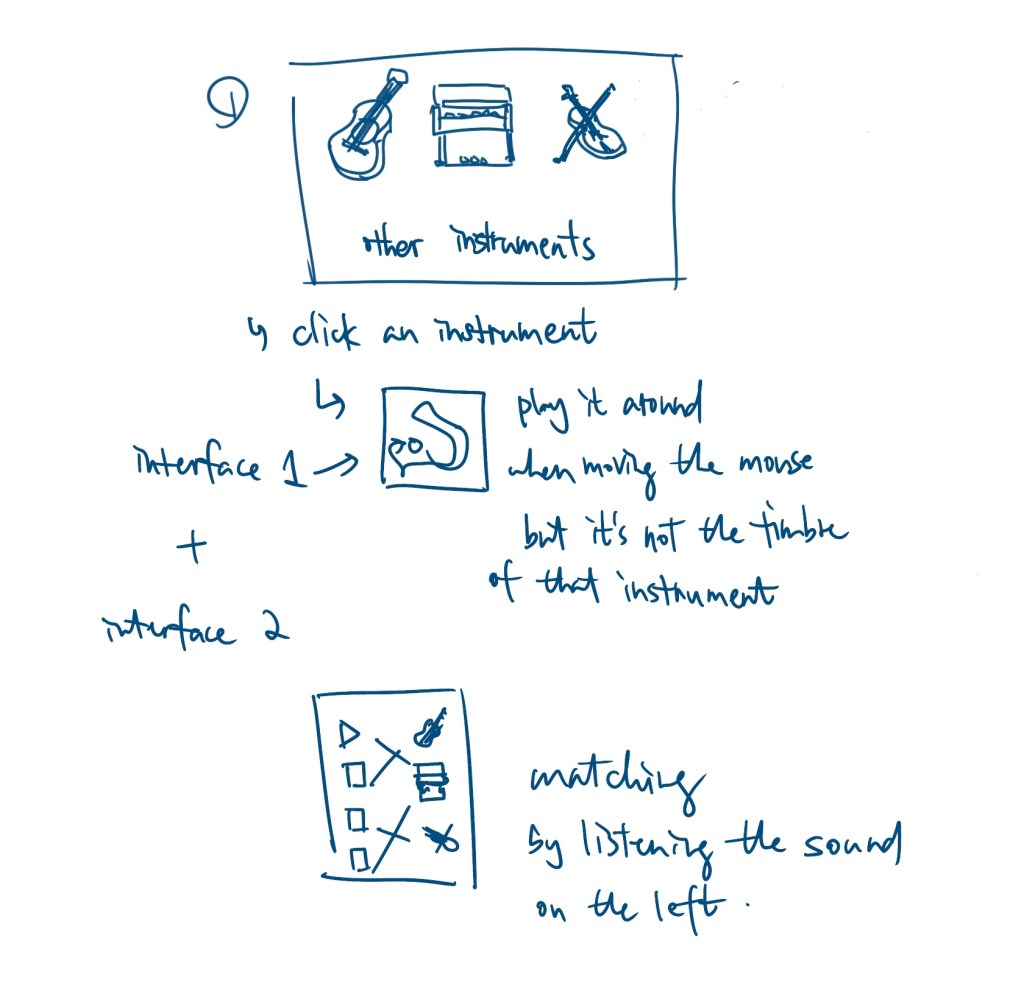 9
other instruments
↳ click an instrument
↳ play it around
interface 1 → when moving the mouse
+ but it's not the timbre
of that instrument
interface 2
matching
by listening the sound
on the left.